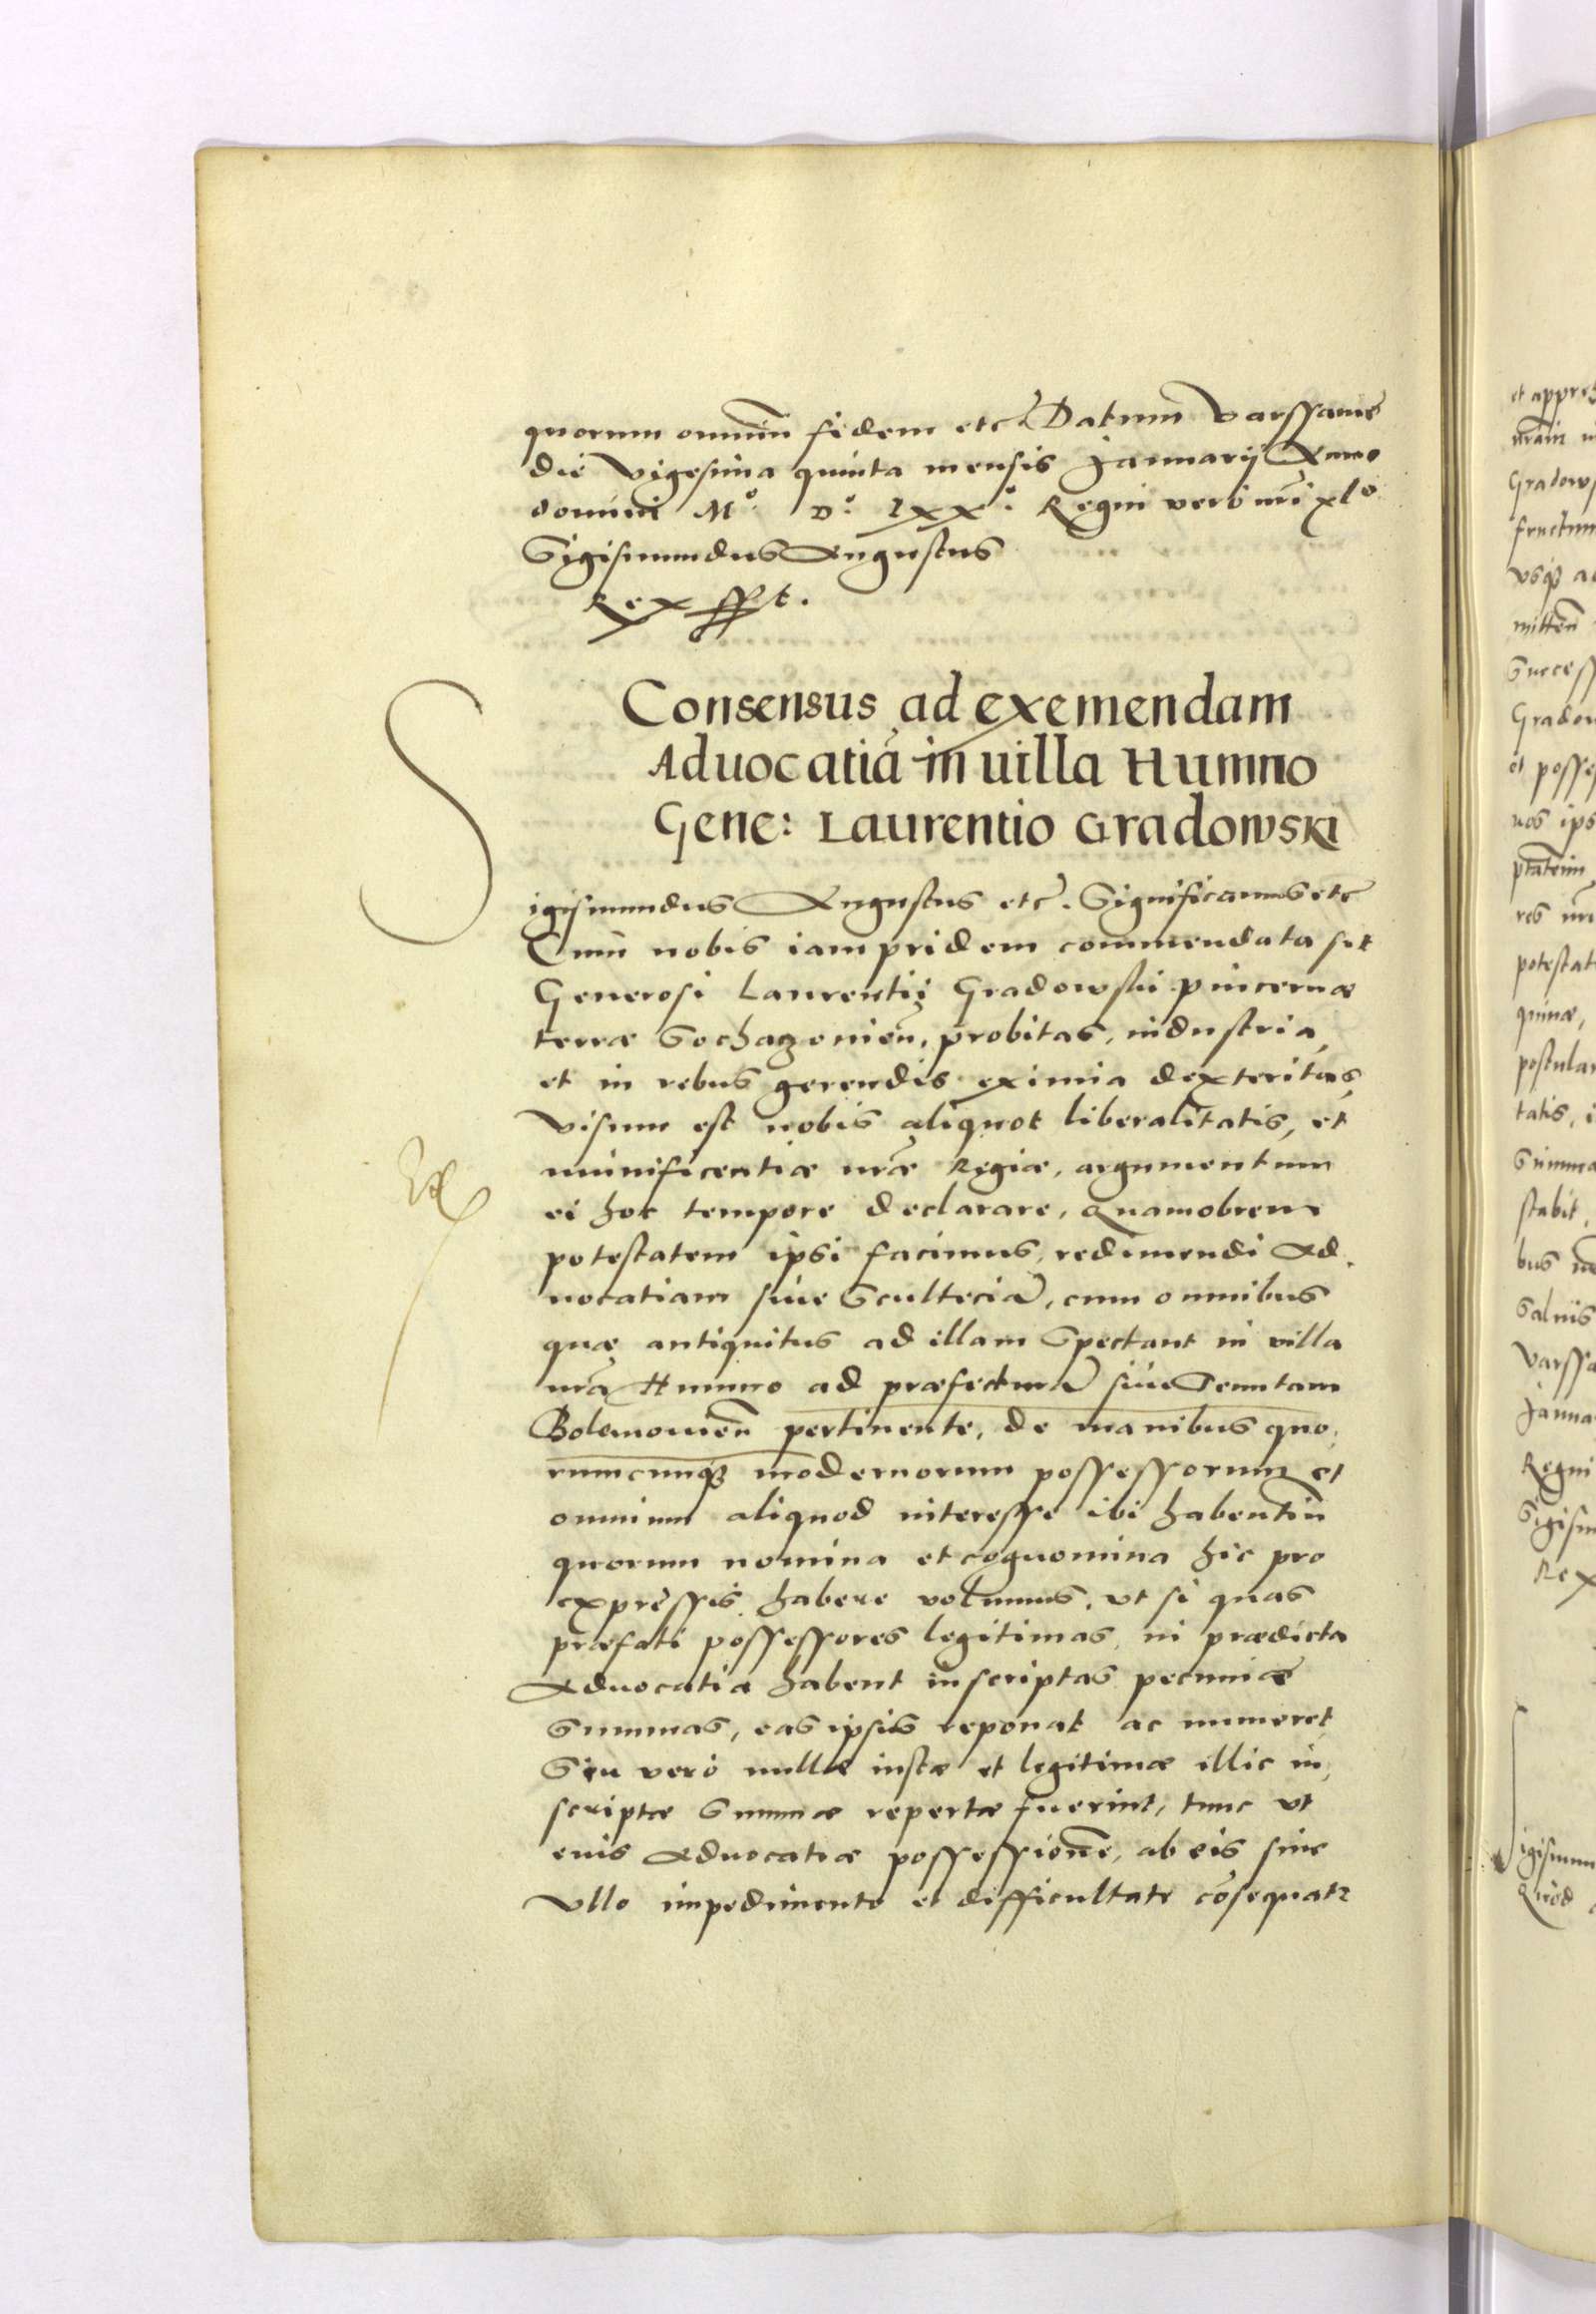 quorum omniũ fidem etc̃ Datum Varssaviẽ
die Vigesima quinta mensis Januarij Anno
domini Mº. Dº. Lxxº. Regni vero nr̃i xlº
Sigismundus Augustus
Rex sspt.
Consensus ad exemendam
Aduocatiã in uilla Humno
Gene: Laurentio Gradowski
Sigismundus Augustus etc̃. Significamus etc̃
Cum nobis iampridem commendata sit
Generosi Laurentij Gradowski pincernæ
terræ Sochaczouien̄, probitas, industria,
et in rebus gerendis eximia dexteritas,
Visum est nobis aliquot liberalitatis, et
munificentiæ nr̃æ Regiæ, argumentum
ei hoc tempore declarare, Quamobrem
potestatem ipsi facimus, redimendi Ad-
uocatiam siue Sculteciã, cum omnibus
quæ antiquitus ad illam Spectant in villa
nr̃a Humno ad præfecturã siue Tenutam
Bolemouien̄ pertinente, de manibus quo,
rumcunqȝ modernorum possessorum et
omnium aliquod interesse ibi habentiũ
quorum nomina et cognomina hic pro
expressis habere volumus, vt si quas
præfati possessores legitimas, in prædicta
Aduocatia habent inscriptas pecuniæ
Summas, eas ipsis reponat ac numeret,
Sin vero nullæ iustæ et legitimæ illic in,
scriptæ Summæ repertæ fuerint, tunc vt
euis Aduocatiæ possessionẽ, ab eis sine
Vllo impedimento et difficultate cõsequatr
et appreh
nr̃am
Gradows
fructum
vsqȝ ad
mitten̄
Success
Gradow
et posses
uos ips
res
potestat
quinæ,
postular
tatis,
Summa
stabit,
bus
Saluis
Varssa
Janua
Regni
Sigism
Rex
igismun
Quod